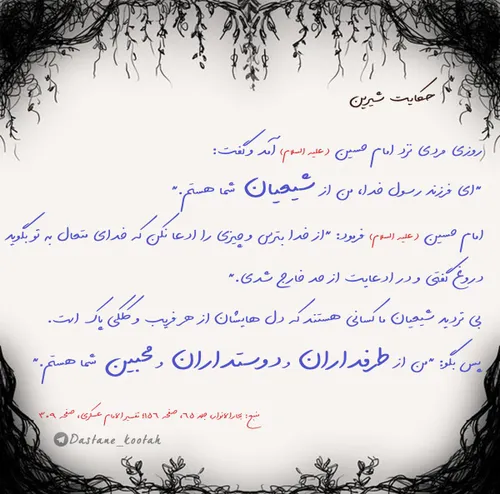 حکایت شیرین
روزی مردی نزد امام حسین (علیه السلام) آمد و گفت:
"ای فرزند رسول خدا، من از شیعیان شما هستم."
امام حسین (علیه السلام) فرمود: "از خدا بترس و چیزی را ادعا نکن که خدای متعال به تو بگوید
دروغ گفتی و در ادعایت از حد خارج شدی."
بی تردید شیعیان ما کسانی هستند که دل هایشان از هر فریب و کلکی پاک است.
پس بگو: "من از طرفداران و دوستداران و محبین شما هستم."
منبع: بحارالانوار، جلد ۶۵، صفحه ۱۱۵۶ تفسیر الامام عسکری، صفحه ۳۰۹
Dastane_kootah